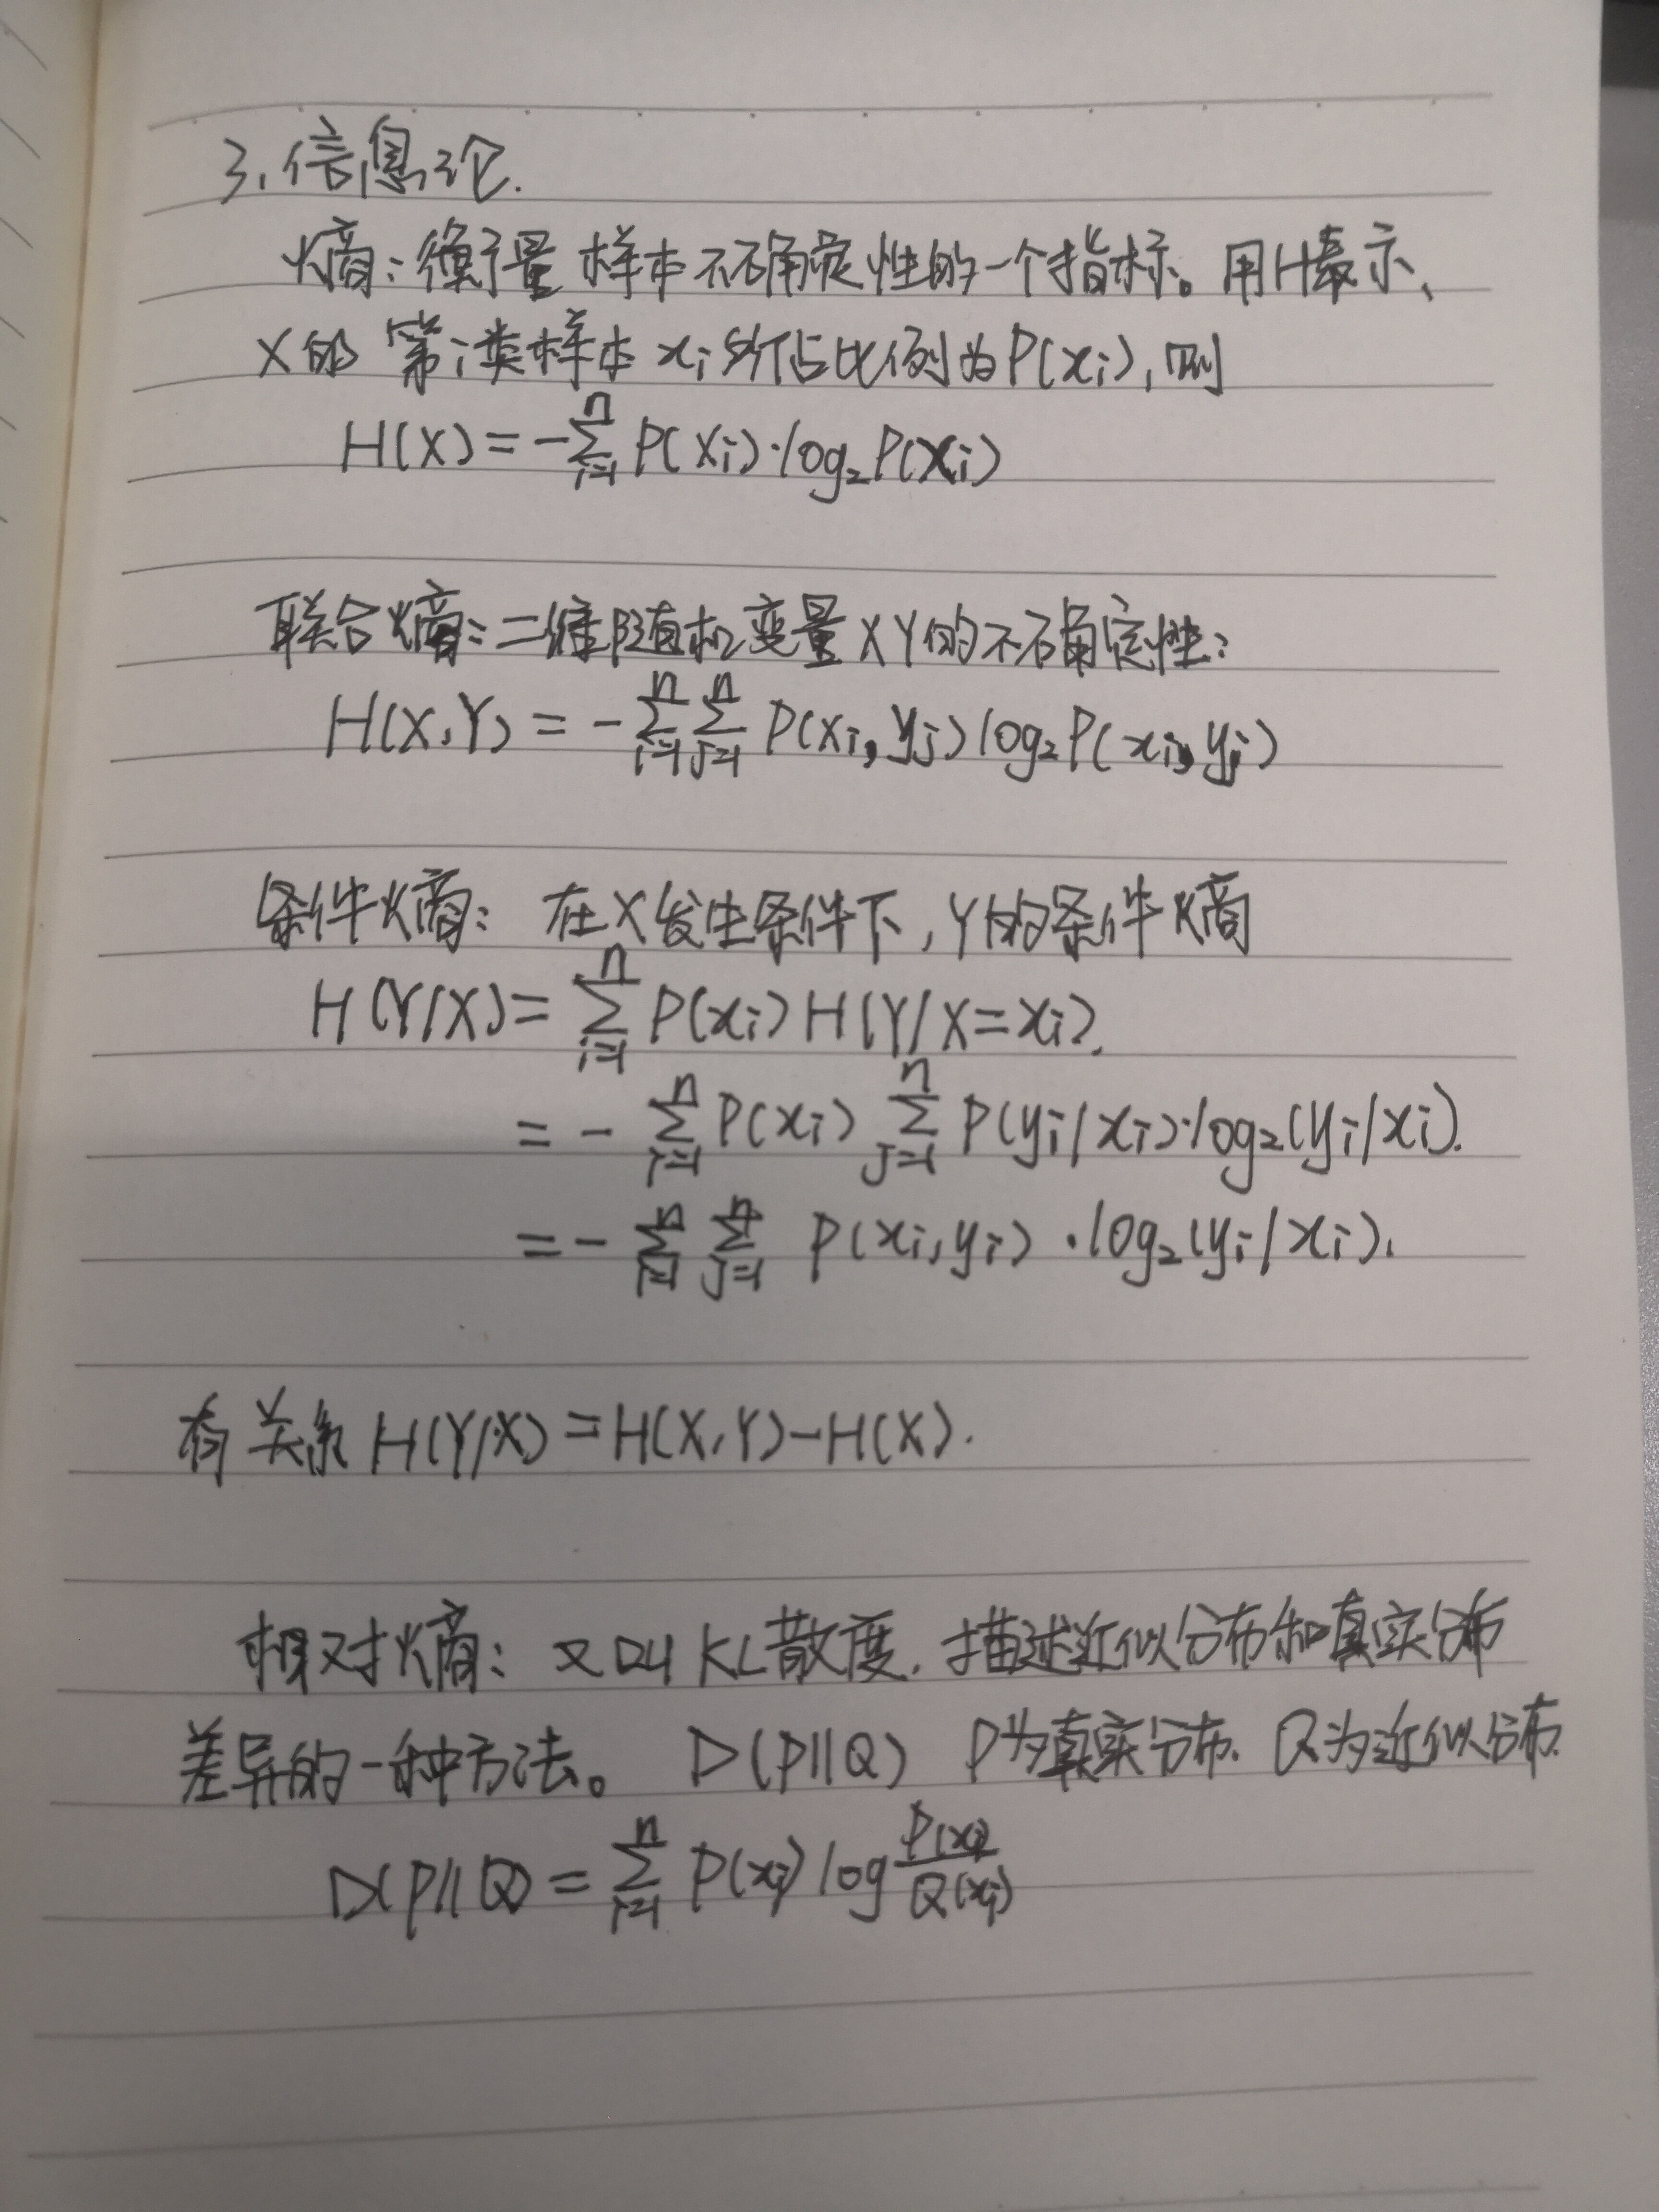 3.信息论.
熵:衡量样本不确定性的一个指标。用H表示、
X的第i类样本xi所占比例为P(xi),则
H(X)=-∑_{i=1}^{n} P(xi)·log₂P(xi)
联合熵:二维随机变量XY的不确定性:
H(X,Y)=-∑_{i=1}^{n}∑_{j=1}^{n} P(xi,yj)log₂P(xi,yj)
条件熵:在X发生条件下,Y的条件熵
H(Y/X)=∑_{i=1}^{n} P(xi)H(Y/X=xi).
=-∑_{i=1}^{n} P(xi)∑_{j=1}^{n} P(yi/xi)·log₂(yi/xi).
=-∑_{i=1}^{n}∑_{j=1}^{n} P(xi,yi)·log₂(yi/xi).
有关系H(Y/X)=H(X,Y)-H(X).
相对熵:又叫KL散度.描述近似分布和真实分布
差异的一种方法。D(P||Q) P为真实分布.Q为近似分布.
D(P||Q)=∑_{i=1}^{n} P(xi)log P(xi)/Q(xi)